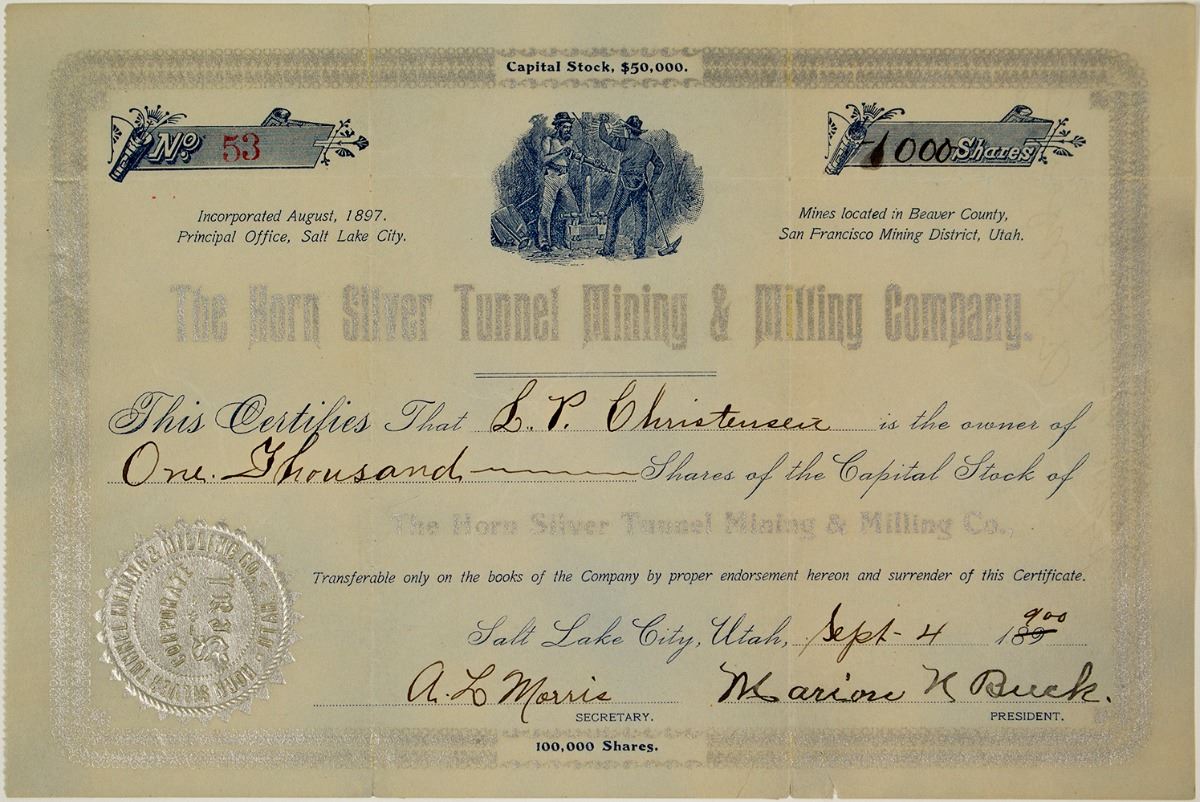 Capital Stock, $50,000.
No. 53
1000 Shares
Incorporated August, 1897.
Principal Office, Salt Lake City.
Mines located in Beaver County,
San Francisco Mining District, Utah.
The Horn Silver Tunnel Mining & Milling Company.
This Certifies That L. P. Christensen is the owner of
One Thousand Shares of the Capital Stock of
The Horn Silver Tunnel Mining & Milling Co.,
Transferable only on the books of the Company by proper endorsement hereon and surrender of this Certificate.
Salt Lake City, Utah, Sept - 4 189 900
A. L. Morris
SECRETARY.
Marion K Buck.
PRESIDENT.
HORN SILVER TUNNEL MINING & MILLING CO. UTAH
CORPORATE
100,000 Shares.